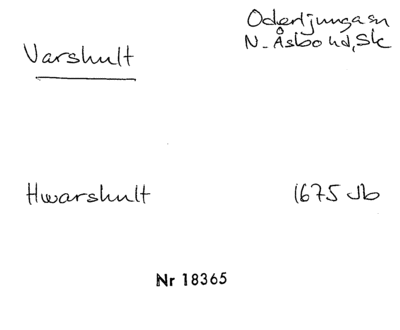 Varshult
Oderljunga sn
N. Åsbo hd, Sk
Hwarshult
1675 Jb
Nr 18365